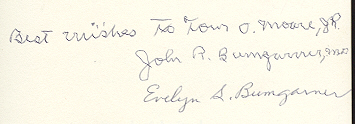 Best wishes to Tom O. Moore, JR.
John R. Bumgarner, MD
Evelyn S. Bumgarner